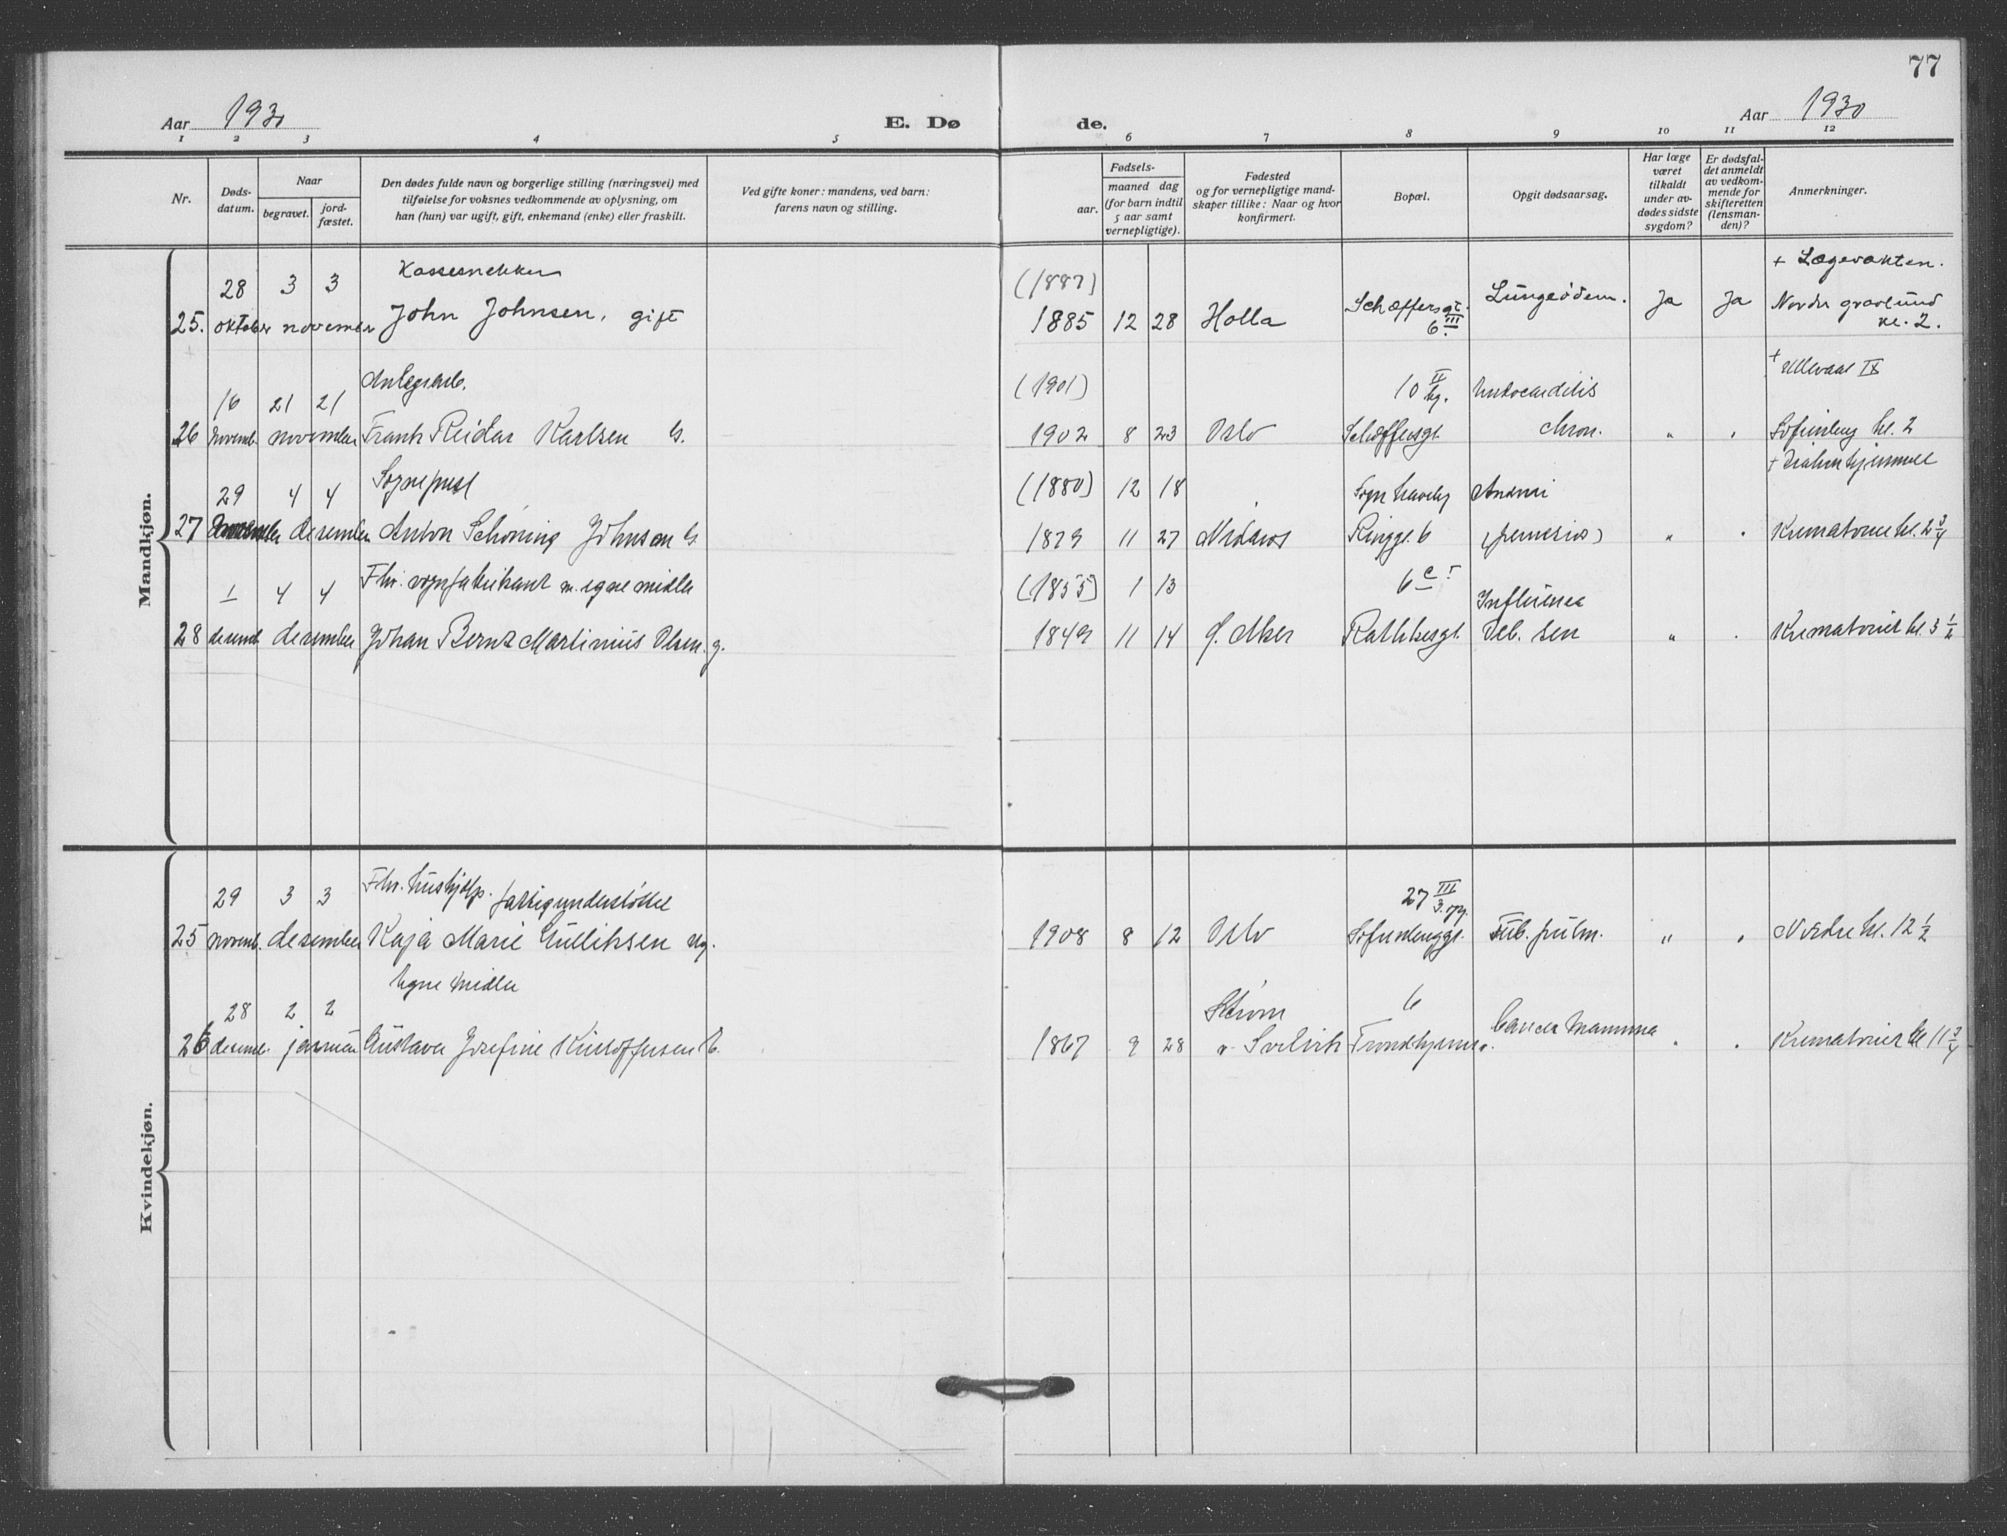 77
Aar 1930
E. Døde.
Aar 1930
1 2 3 4 5 6 7 8 9 10 11 12
Nr.
Døds-
datum.
Naar
begravet.
jord-
fæstet.
Den dødes fulde navn og borgerlige stilling (næringsvei) med
tilføielse for voksnes vedkommende av oplysning, om
han (hun) var ugift, gift, enkemand (enke) eller fraskilt.
Ved gifte koner: mandens, ved barn:
farens navn og stilling.
Fødsels-
aar.
maaned dag
(for barn indtil
5 aar samt
vernepligtige).
Fødested
og for vernepligtige mand-
skaper tillike: Naar og hvor
konfirmert.
Bopæl.
Opgit dødsaarsag.
Har læge
været
tilkaldt
under av-
dødes sidste
sygdom?
Er dødsfal-
det anmeldt
av vedkom-
mende for
skifteretten
(lensman-
den)?
Anmerkninger.
Mandkjøn.
28 3 3 Kassesnekker (1887) + Lægevakten.
25. oktober november John Johnsen, gift 1885 12 28 Holla Schæffersgt. 6 III Lungeødem. Ja Ja Nordre gravlund
kl. 2.
16 21 21 Anlegsarb. (1901) 10 II + Ullevaal IX
26 novemb. november Frank Reidar Karlsen G. 1902 8 23 Oslo Schæffersgt. chron. " " Sofienberg kl. 2
29 4 4 Sogneprest (1880) 12 18 Sogn haveby Anemi
27 desember Anton Schöning Johnsen G. 1879 11 27 Nidaros Ringgt. 6 (perniciøs) " " Krematoriet kl. 2 3/4
1 4 4 Fhv. vognfabrikant m. egne midler (1855) 1 13 6 c I Influensa
28 desemb. desember Johan Bernt Martinius Olsen. g. 1849 11 14 V. Aker Rathkesgt. Deb. sen " " Krematoriet kl. 3 1/2
Kvindekjøn.
29 3 3 Fhv. hushjelp. fattigunderstøttet 27 III
25 novemb. desember Kaja Marie Gulliksen ug. 1908 8 12 Oslo Sofienberggt. Tub. pulm. " " Nordre kl. 12 1/2
Egne midler
28 2 2 Strøm 6
26 desemb. januar Gustava Josefine Kristoffersen E. 1867 9 28 v. Svelvik Trondhjemsv. Cancer mamma " " Krematoriet kl 11 3/4